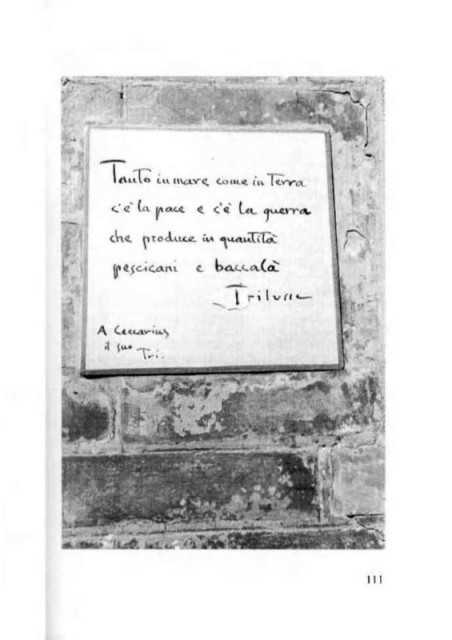 Tanto in mare, come in Terra
c'è la pace e c'è la guerra
che produce in quantità
pescicani e baccalà
Trilussa
A Ceccarius
il suo
Tri.
111